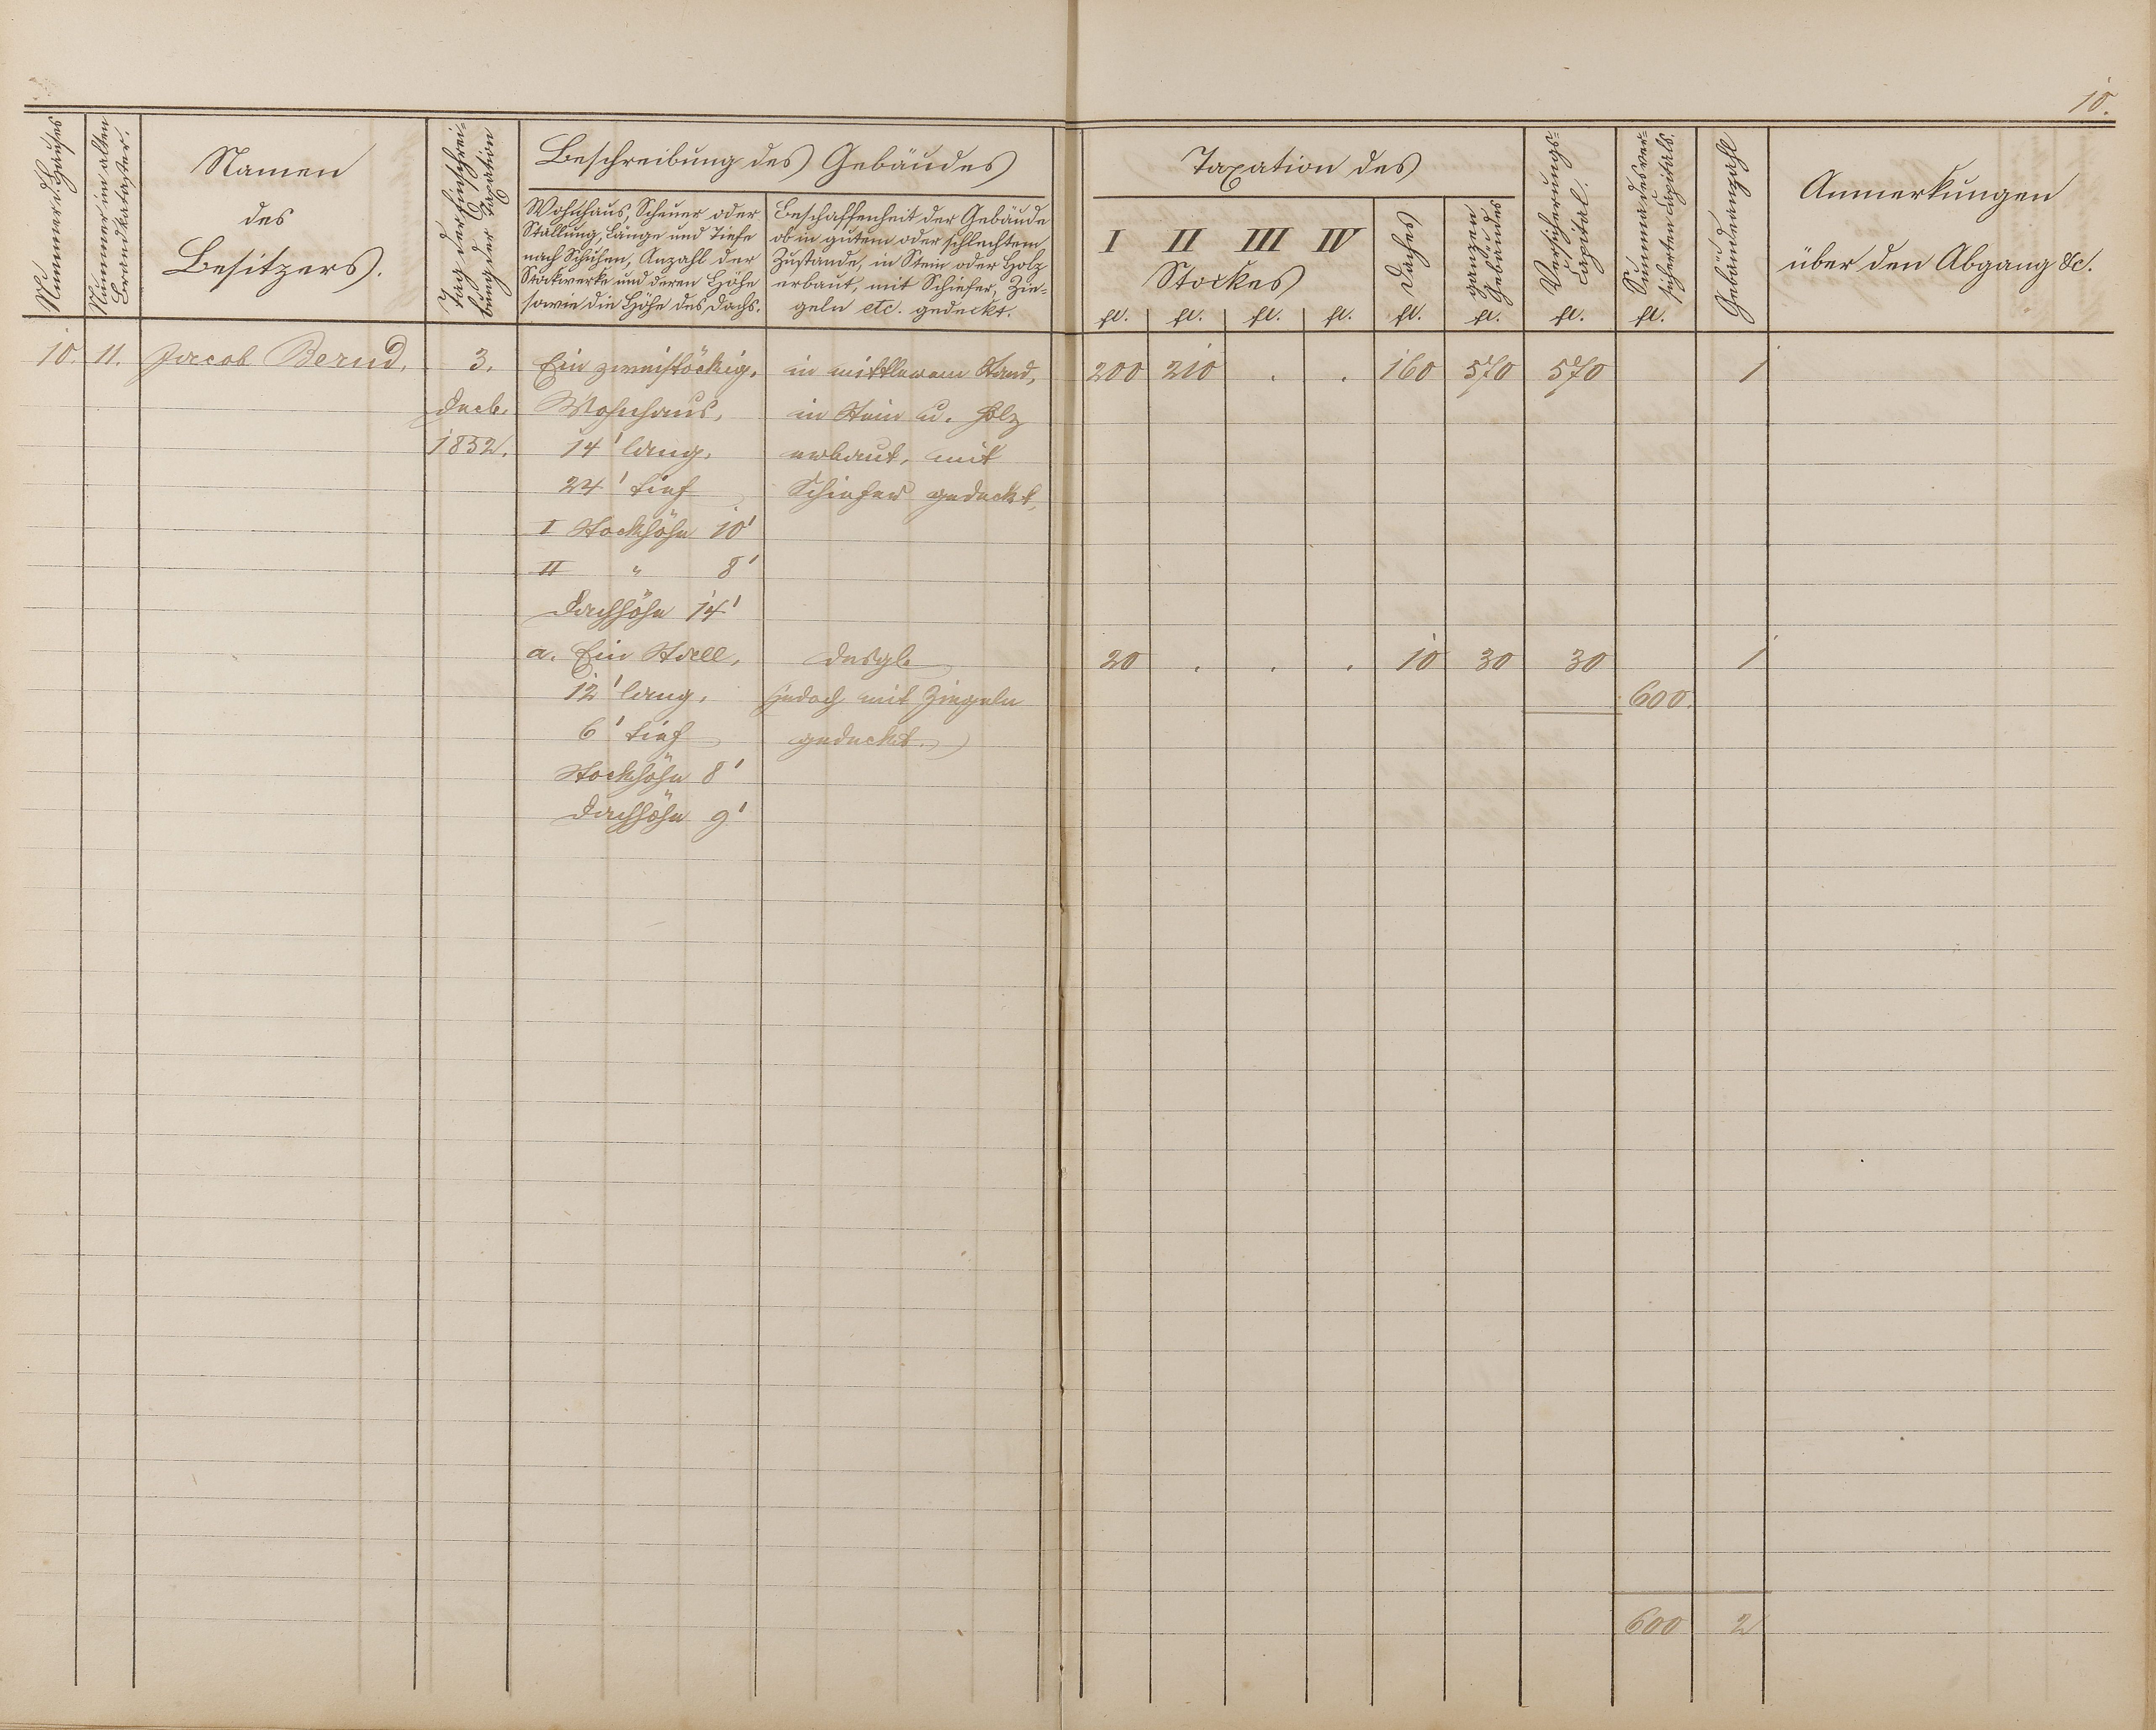 10.
Nummer d. Hauses
Nummer im alten
Brandkataster.
Namen
des
Besitzers.
Tag der Einschrei-
bung der Taxation
Beschreibung des Gebäudes
Wohnhaus, Scheuer oder
Stallung, Länge und Tiefe
nach Schuhen, Anzahl der
Stockwerke und deren Höhe
sowie die Höhe des Dachs.
Beschaffenheit der Gebäude
ob in gutem oder schlechtem
Zustande, in Stein oder Holz
erbaut, mit Schiefer, Zie-
geln etc. gedeckt.
Taxation des
I II III IV
Stockes
Daches
ganzen
Gebäudes
Versicherungs-
Capital.
Summa des ver-
sicherten Capitals.
Gebäudeanzahl
Anmerkungen
über den Abgang &c.
fl. fl. fl. fl. fl. fl. fl. fl.
10. 11. Jacob Bernd. 3. Ein zweistöckig. in mittlerem Stand, 200 210 . . 160 570 570 1
Decb. Wohnhaus, in Stein u. Holz
1852. 14' lang, erbaut, mit
24' tief Schiefer gedeckt,
I Stockhöhe 10'
II " 8'
Dachhöhe 14'
a. Ein Stall, desgl. 20 . . . 10 30 30 1
12' lang, (jedoch mit Ziegeln 600.
6' tief gedeckt.)
Stockhöhe 8'
Dachhöhe 9'
600 2